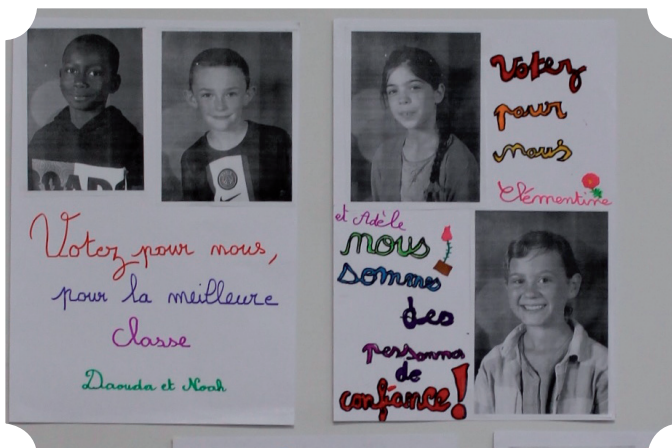 ROAD
Votez pour nous,
pour la meilleure
classe
Daouda et Noah
Votez
pour
nous
Clémentine
et Adèle
nous
sommes
des
personnes
de
confiance !